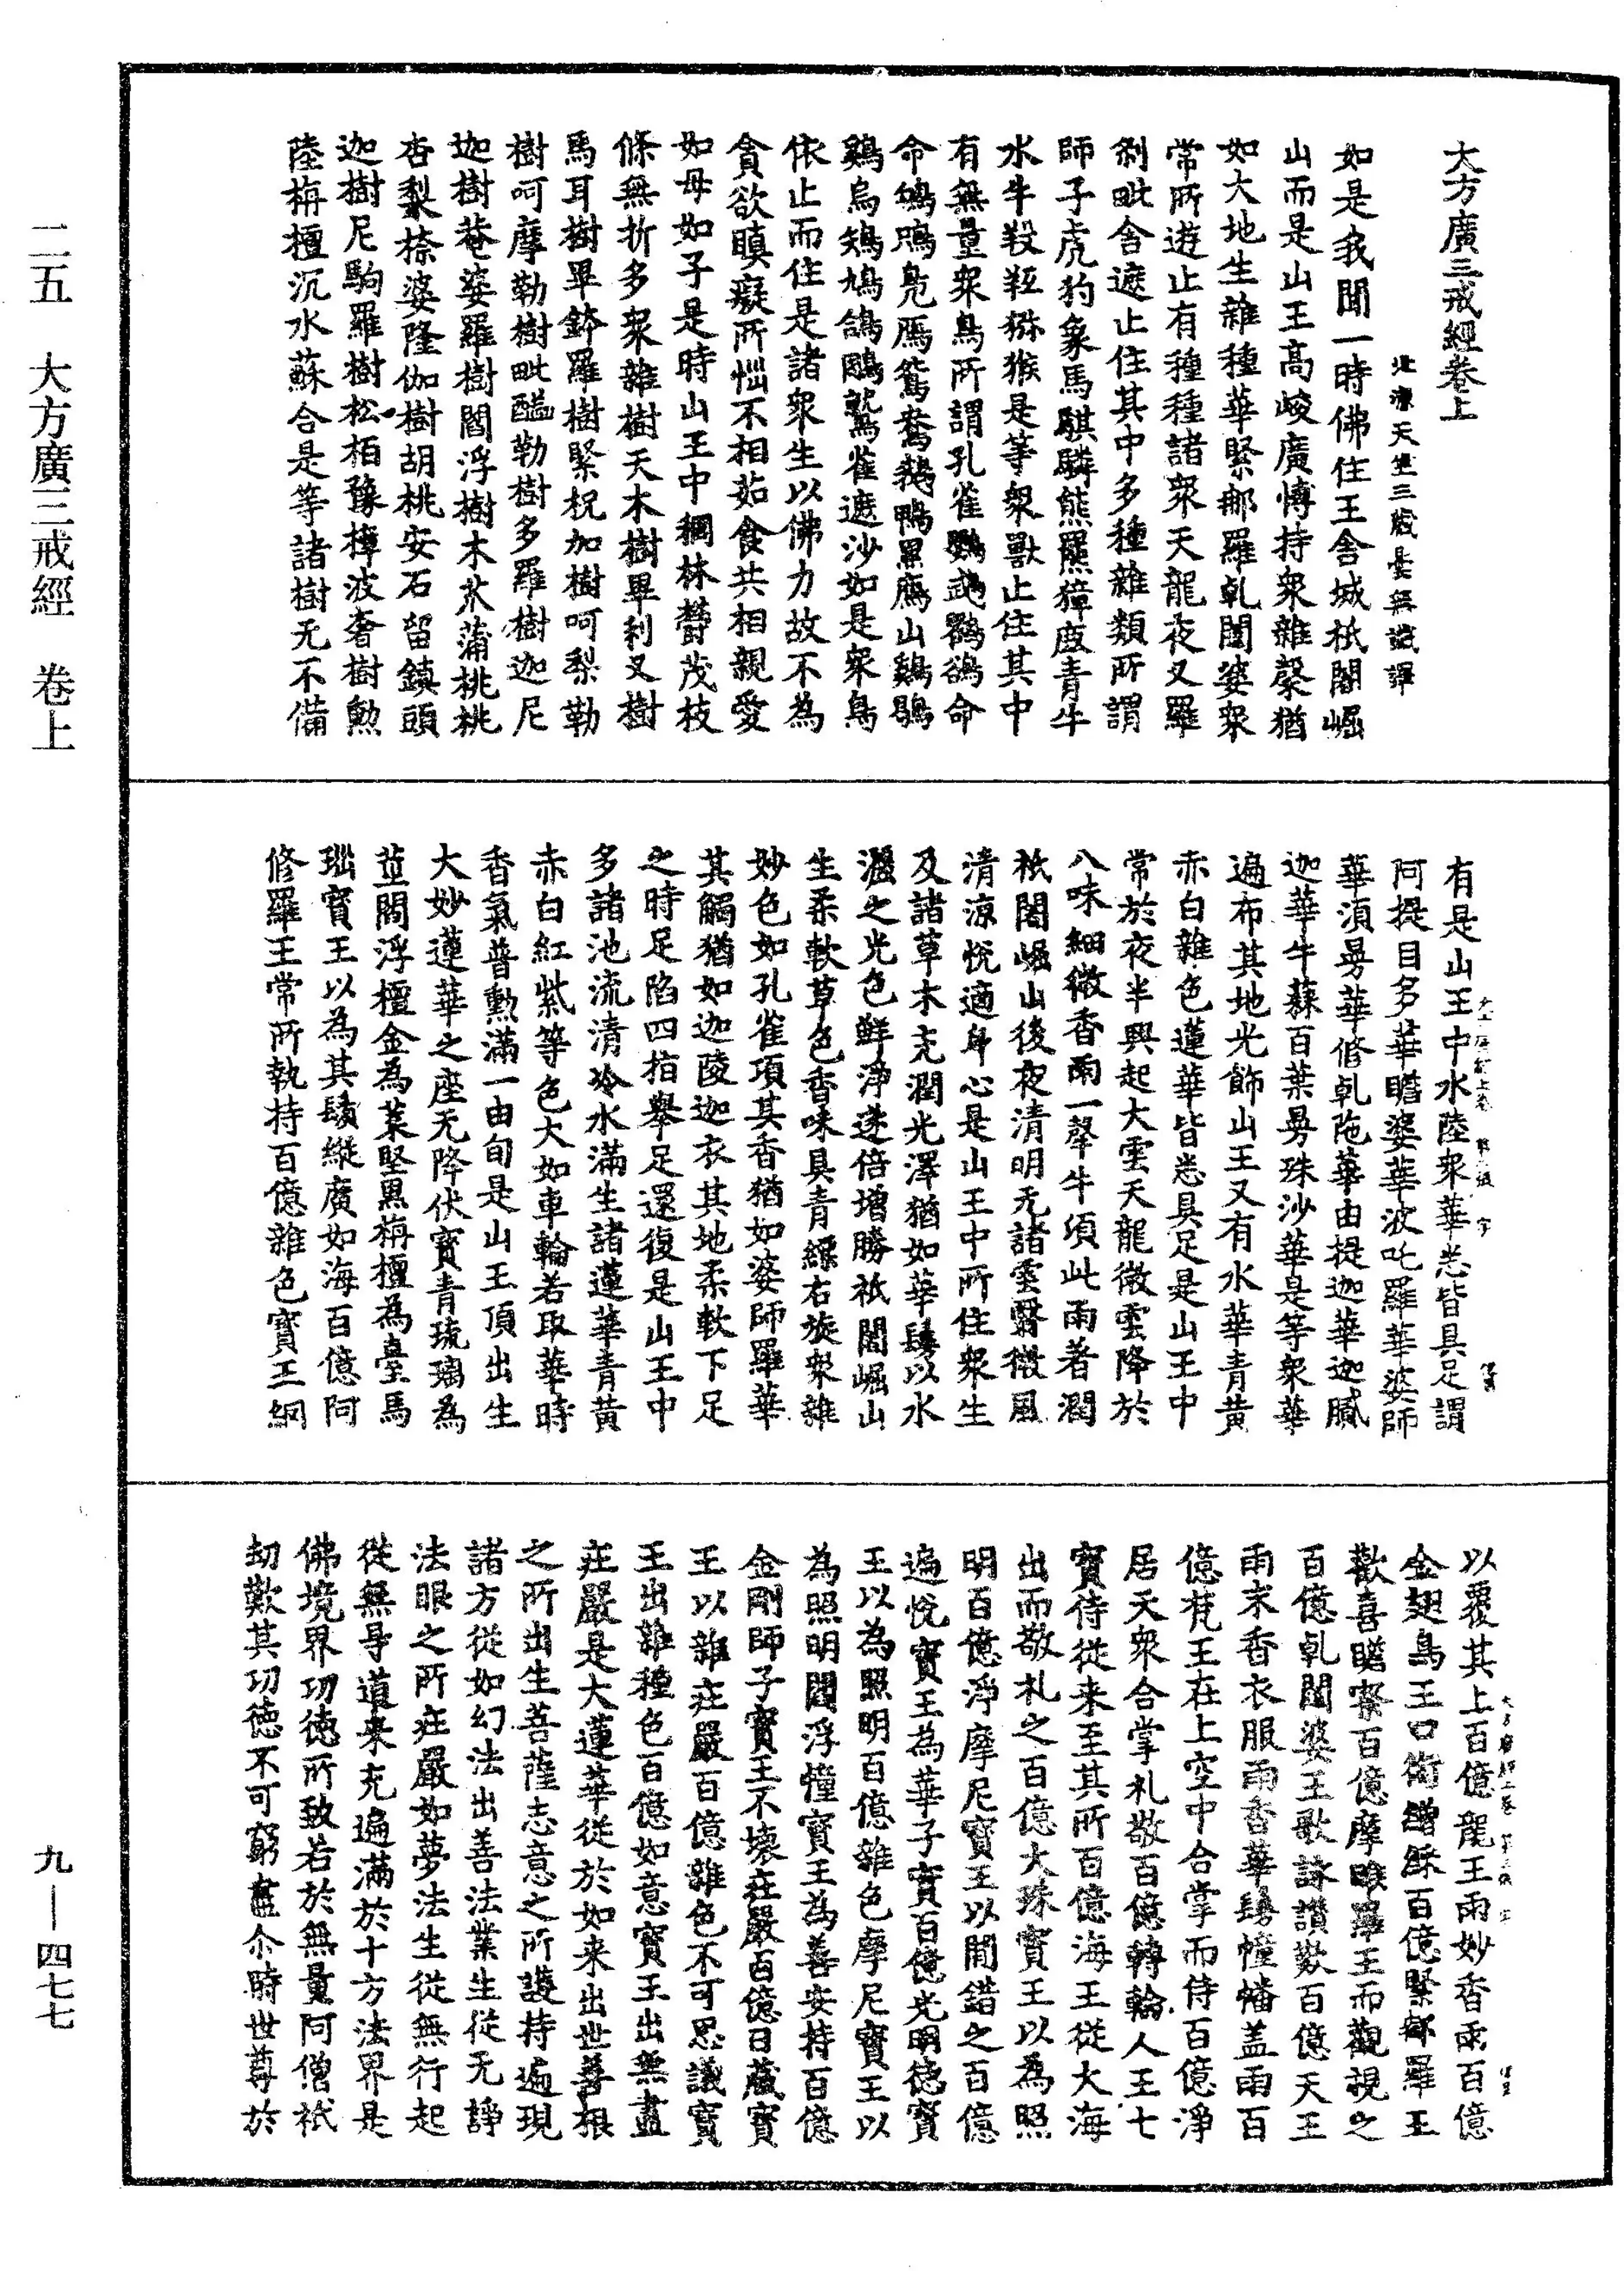 大方廣三戒經卷上
北涼天竺三藏曇無讖譯
如是我聞一時佛住王舍城祇闍崛
山而是山王高峻廣博持衆雜穀猶
如大地生雜種華緊那羅乹闥婆衆
常所遊止有種種諸衆天龍夜叉羅
剎毗舍遮止住其中多種雜類所謂
師子虎豹象馬騏驎熊羆獐鹿青牛
水牛羖羝猕猴是等衆獸止住其中
有無量衆鳥所謂孔雀鸚鵡鸜鵒命
命鳩鴿鳬鴈鴛鴦鵝鴨黑鴈山鷄鶡
鷄烏鵄鳩鴿鵰鷲雀遮沙如是衆鳥
依止而住是諸衆生以佛力故不為
貪欲瞋癡所惱不相茹食共相親愛
如母如子是時山王中稠林欝茂枝
條無折多衆雜樹天木樹畢利叉樹
馬耳樹畢鉢羅樹緊柷加樹呵梨勒
樹呵摩勒樹毗醯勒樹多羅樹迦尼
迦樹菴婆羅樹閻浮樹木苽蒲桃桃
杏梨㮈婆隆伽樹胡桃安石留鎮頭
迦樹尼駒羅樹松栢豫樟波奢樹勲
陸栴檀沉水蘇合是等諸樹无不備
有是山王中水陸衆華悉皆具足謂
阿提目多華瞻婆華波吒羅華婆師
華須曼華脩乹陁華由提迦華迦膩
迦華牛蘇百葉曼殊沙華是等衆華
遍布其地光飾山王又有水華青黄
赤白雜色蓮華皆悉具足是山王中
常於夜半興起大雲天龍微雲降於
八味細微香雨一搫牛頃此雨著潤
祇闍崛山後夜清明无諸雲翳微風
清涼悅適身心是山王中所住衆生
及諸草木充潤光澤猶如華鬘以水
灑之光色鮮淨遂倍增勝祇闍崛山
生柔軟草色香味具青緑右旋衆雜
妙色如孔雀項其香猶如婆師羅華
其觸猶如迦陵迦衣其地柔軟下足
之時足陷四指舉足還復是山王中
多諸池流清冷水滿生諸蓮華青黄
赤白紅紫等色大如車輪若取華時
香氣普勲滿一由旬是山王頂出生
大妙蓮華之座无降伏寶青琉璃為
莖閻浮檀金為葉堅黒栴檀為臺馬
瑙寳王以為其鬚縱廣如海百億阿
修羅王常所執持百億雜色寳王網
以覆其上百億龍王雨妙香雨百億
金翅鳥王口銜繒䌽百億緊那羅王
歡喜瞻察百億摩睺羅王而觀視之
百億乹闥婆王歌詠讚歎百億天王
雨末香衣服雨香華鬘幢幡盖雨百
億梵王在上空中合掌而侍百億淨
居天衆合掌札敬百億轉輪人王七
寳侍從来至其所百億海王從大海
出而敬札之百億大珠寳王以為照
明百億淨摩尼寳王以閒錯之百億
遍悅寳王為華子寳百億光明德寳
王以為照明百億雜色摩尼寳王以
為照明閻浮幢寳王為善安持百億
金剛師子寳王不壊庄嚴百億日藏寳
王以雜庄嚴百億雜色不可思議寳
王出雜種色百億如意寳王出無盡
庄嚴是大蓮華從於如来出世善根
之所出生菩薩志意之所護持遍現
諸方從如幻法出善法業生從无諍
法眼之所庄嚴如夢法生從無行起
從無㝵道来充遍滿於十方法界是
佛境界功徳所致若於無量阿僧祇
劫歎其功徳不可窮盡尒時世尊於
二五　大方廣三戒經　卷上
九—四七七